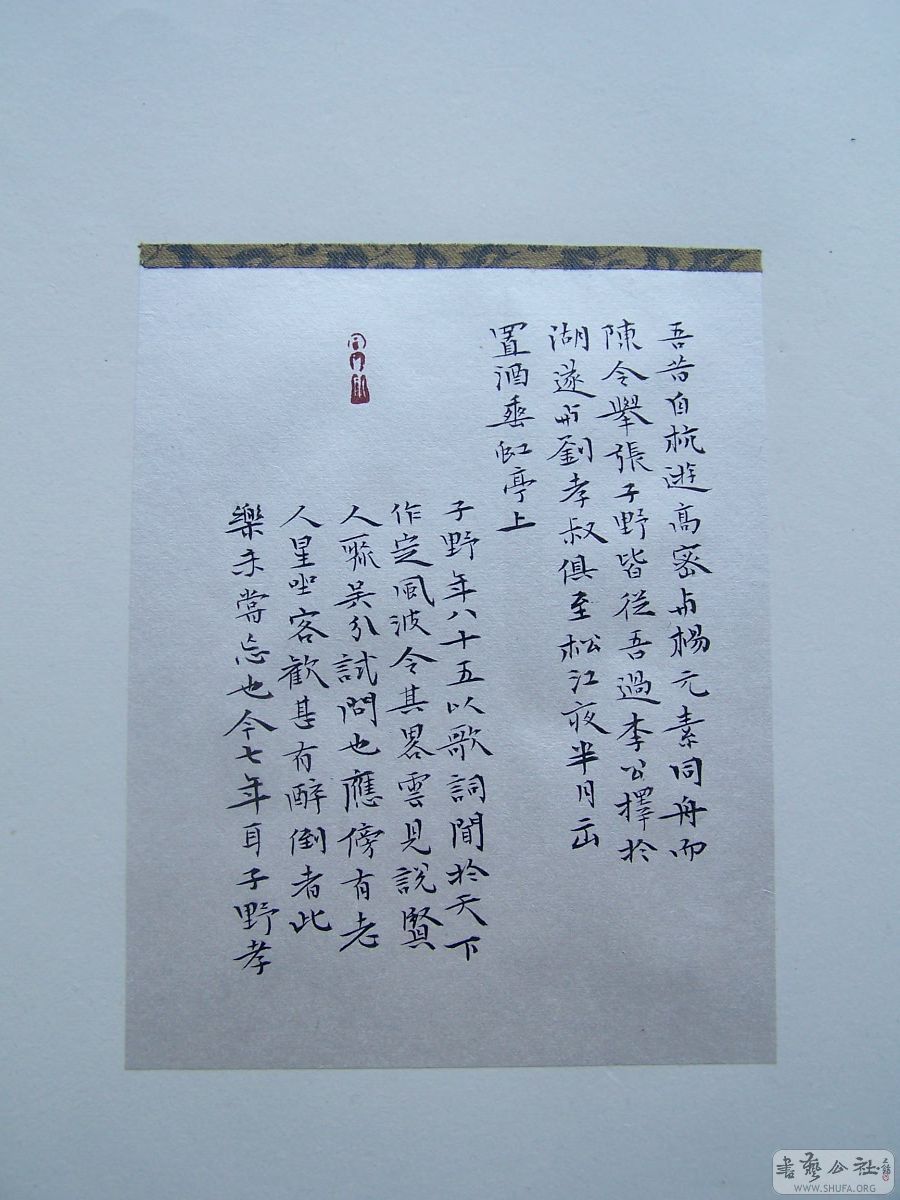 吾昔自杭遊高密与楊元素同舟而
陳令舉張子野皆從吾過李公擇於
湖遂与劉孝叔俱至松江夜半月出
置酒垂虹亭上
子野年八十五以歌詞聞於天下
作定風波令其畧雲見說賢
人聚吳分試問也應傍有老
人星坐客歡甚有醉倒者此
樂未嘗忘也今七年耳子野孝
書藝公社
WWW.SHUFA.ORG